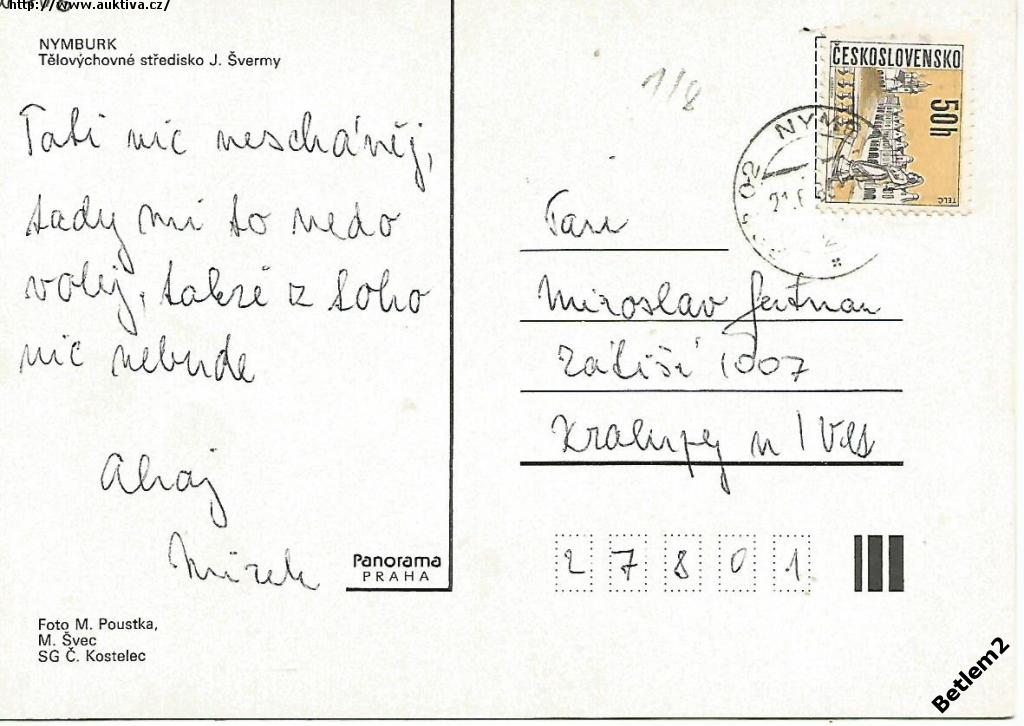 http://www.auktiva.cz/
NYMBURK
Tělovýchovné středisko J. Švermy
Tati nic neschánĕj,
tady mi to nedo
volej, takže z toho
nic nebude
Ahoj
Mirek
Panorama
PRAHA
Foto M. Poustka,
M. Švec
SG Č. Kostelec
1/8
ČESKOSLOVENSKO
50h
TELČ
NYMB
02
Miroslav
Zátiší 1007
Kralupy n/Vlt
27801
Betlem2